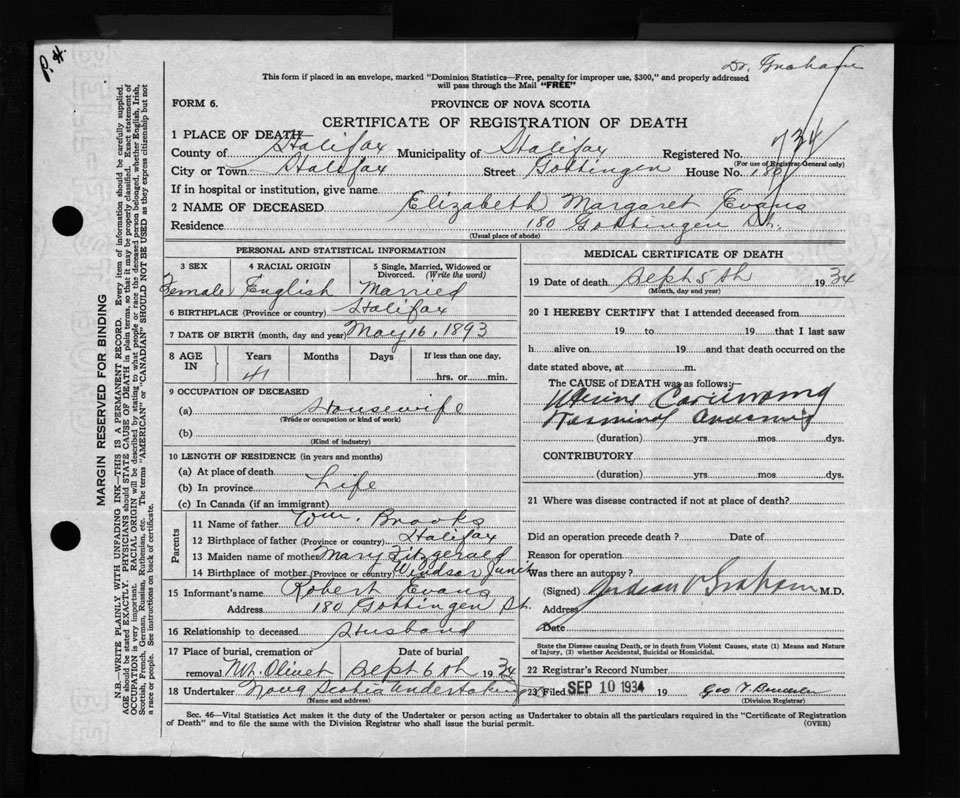 P. H.
Dr. Graham
This form if placed in an envelope, marked "Dominion Statistics—Free, penalty for improper use, $300," and properly addressed
will pass through the Mail "FREE"
FORM 6.
PROVINCE OF NOVA SCOTIA
CERTIFICATE OF REGISTRATION OF DEATH
1 PLACE OF DEATH—
County of Halifax Municipality of Halifax Registered No. 734
(For use of Registrar General only)
City or Town Halifax Street Gottingen House No. 180
If in hospital or institution, give name
2 NAME OF DECEASED Elizabeth Margaret Evans
Residence 180 Gottingen St.
(Usual place of abode)
PERSONAL AND STATISTICAL INFORMATION
3 SEX 4 RACIAL ORIGIN 5 Single, Married, Widowed or
Divorced. (Write the word)
Female English Married
6 BIRTHPLACE (Province or country) Halifax
7 DATE OF BIRTH (month, day and year) May 16, 1893
8 AGE IN Years Months Days If less than one day,
41 hrs. or min.
9 OCCUPATION OF DECEASED
(a) Housewife
(Trade or occupation or kind of work)
(b)
(Kind of industry)
10 LENGTH OF RESIDENCE (in years and months)
(a) At place of death
(b) In province Life
(c) In Canada (if an immigrant)
Parents
11 Name of father Wm. Brooks
12 Birthplace of father (Province or country) Halifax
13 Maiden name of mother Mary Fitzgerald
14 Birthplace of mother (Province or country) Windsor Junct
15 Informant's name Robert Evans
Address 180 Gottingen St.
16 Relationship to deceased Husband
17 Place of burial, cremation or removal Mt. Olivet Date of burial Sept 6th 1934
18 Undertaker Nova Scotia Undertaking
(Name and address)
MEDICAL CERTIFICATE OF DEATH
19 Date of death Sept 5th 1934
(Month, day and year)
20 I HEREBY CERTIFY that I attended deceased from
19 to 19 that I last saw
h alive on 19 and that death occurred on the
date stated above, at m.
The CAUSE OF DEATH was as follows:—
Uterine Carcinoma
Terminal
(duration) yrs mos dys.
CONTRIBUTORY
(duration) yrs mos dys.
21 Where was disease contracted if not at place of death?
Did an operation precede death? Date of
Reason for operation
Was there an autopsy?
(Signed) Graham M.D.
Address
Date
State the Disease causing Death, or in death from Violent Causes, state (1) Means and Nature
of Injury, (2) whether Accidental, Suicidal or Homicidal.
22 Registrar's Record Number
23 Filed SEP 10 1934 19
(Division Registrar)
Sec. 46—Vital Statistics Act makes it the duty of the Undertaker or person acting as Undertaker to obtain all the particulars required in the "Certificate of Registration
of Death" and to file the same with the Division Registrar who shall issue the burial permit. (OVER)
MARGIN RESERVED FOR BINDING
N.B.—WRITE PLAINLY WITH UNFADING INK—THIS IS A PERMANENT RECORD. Every item of information should be carefully supplied.
AGE should be stated EXACTLY. PHYSICIANS should STATE CAUSE OF DEATH in plain terms, so that it may be properly classified. Exact statement of
OCCUPATION is very important. RACIAL ORIGIN will be described by stating to what people or race the deceased person belonged, whether English, Irish,
Scottish, French, German, Russian, Ruthenian, etc. The terms "AMERICAN" or "CANADIAN" SHOULD NOT BE USED as they express citizenship but not
a race or people. See instructions on back of certificate.